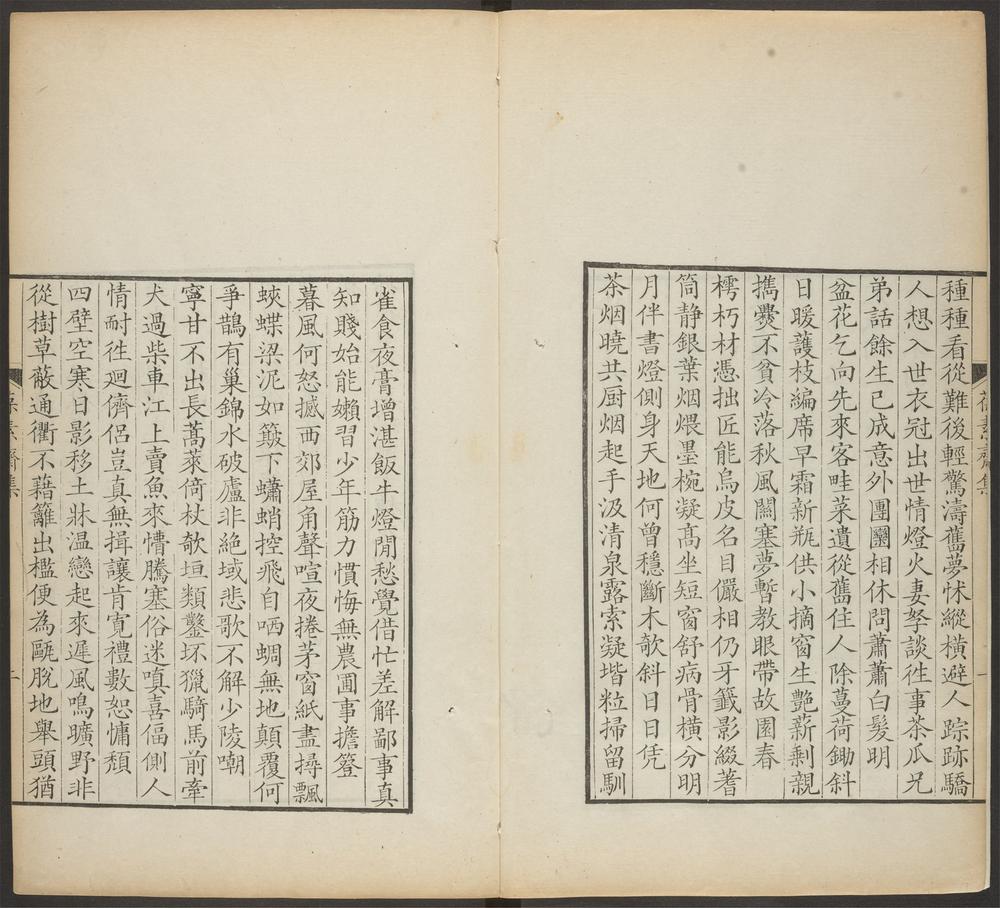 種種看從難後輕驚濤舊夢怵縱橫避人踪跡驕
人想入世衣冠出世情燈火妻孥談徃事茶瓜兄
弟話餘生已成意外團圞相休問蕭蕭白髮明
盆花乞向先來客畦菜遺從舊住人除蔓荷鋤斜
日暖護枝編席早霜新瓶供小摘窗生艷薪剩親
擕爨不貧冷落秋風關塞夢暫教眼帶故園春
樗朽材憑拙匠能烏皮名目儼相仍牙籤影綴蓍
筒静銀葉烟煨墨椀凝髙坐短窗舒病骨橫分明
月伴書燈側身天地何曾穩斷木欹斜日日凭
茶烟曉共厨烟起手汲清泉露索凝堦粒掃留馴
齋集
一
雀食夜膏增湛飯牛燈閒愁覺借忙差解鄙事真
知賤始能嬾習少年筋力慣悔無農圃事擔簦
暮風何怒撼西郊屋角聲喧夜捲茅窗紙盡撏飄
蛺蝶梁泥如簸下蠨蛸控飛自哂蜩無地顛覆何
爭鵲有巢錦水破廬非絶域悲歌不解少陵嘲
寧甘不出長蒿萊倚杖欹垣類鑿坏獵騎馬前牽
犬過柴車江上賣魚來慒騰塞俗迷嗔喜偪側人
情耐徃廻儕侶豈真無揖讓肯寛禮數恕慵頹
四壁空寒日影移土牀温戀起來遲風鳴曠野非
從樹草蔽通衢不藉籬出檻便為甌脫地舉頭猶
齋集
二